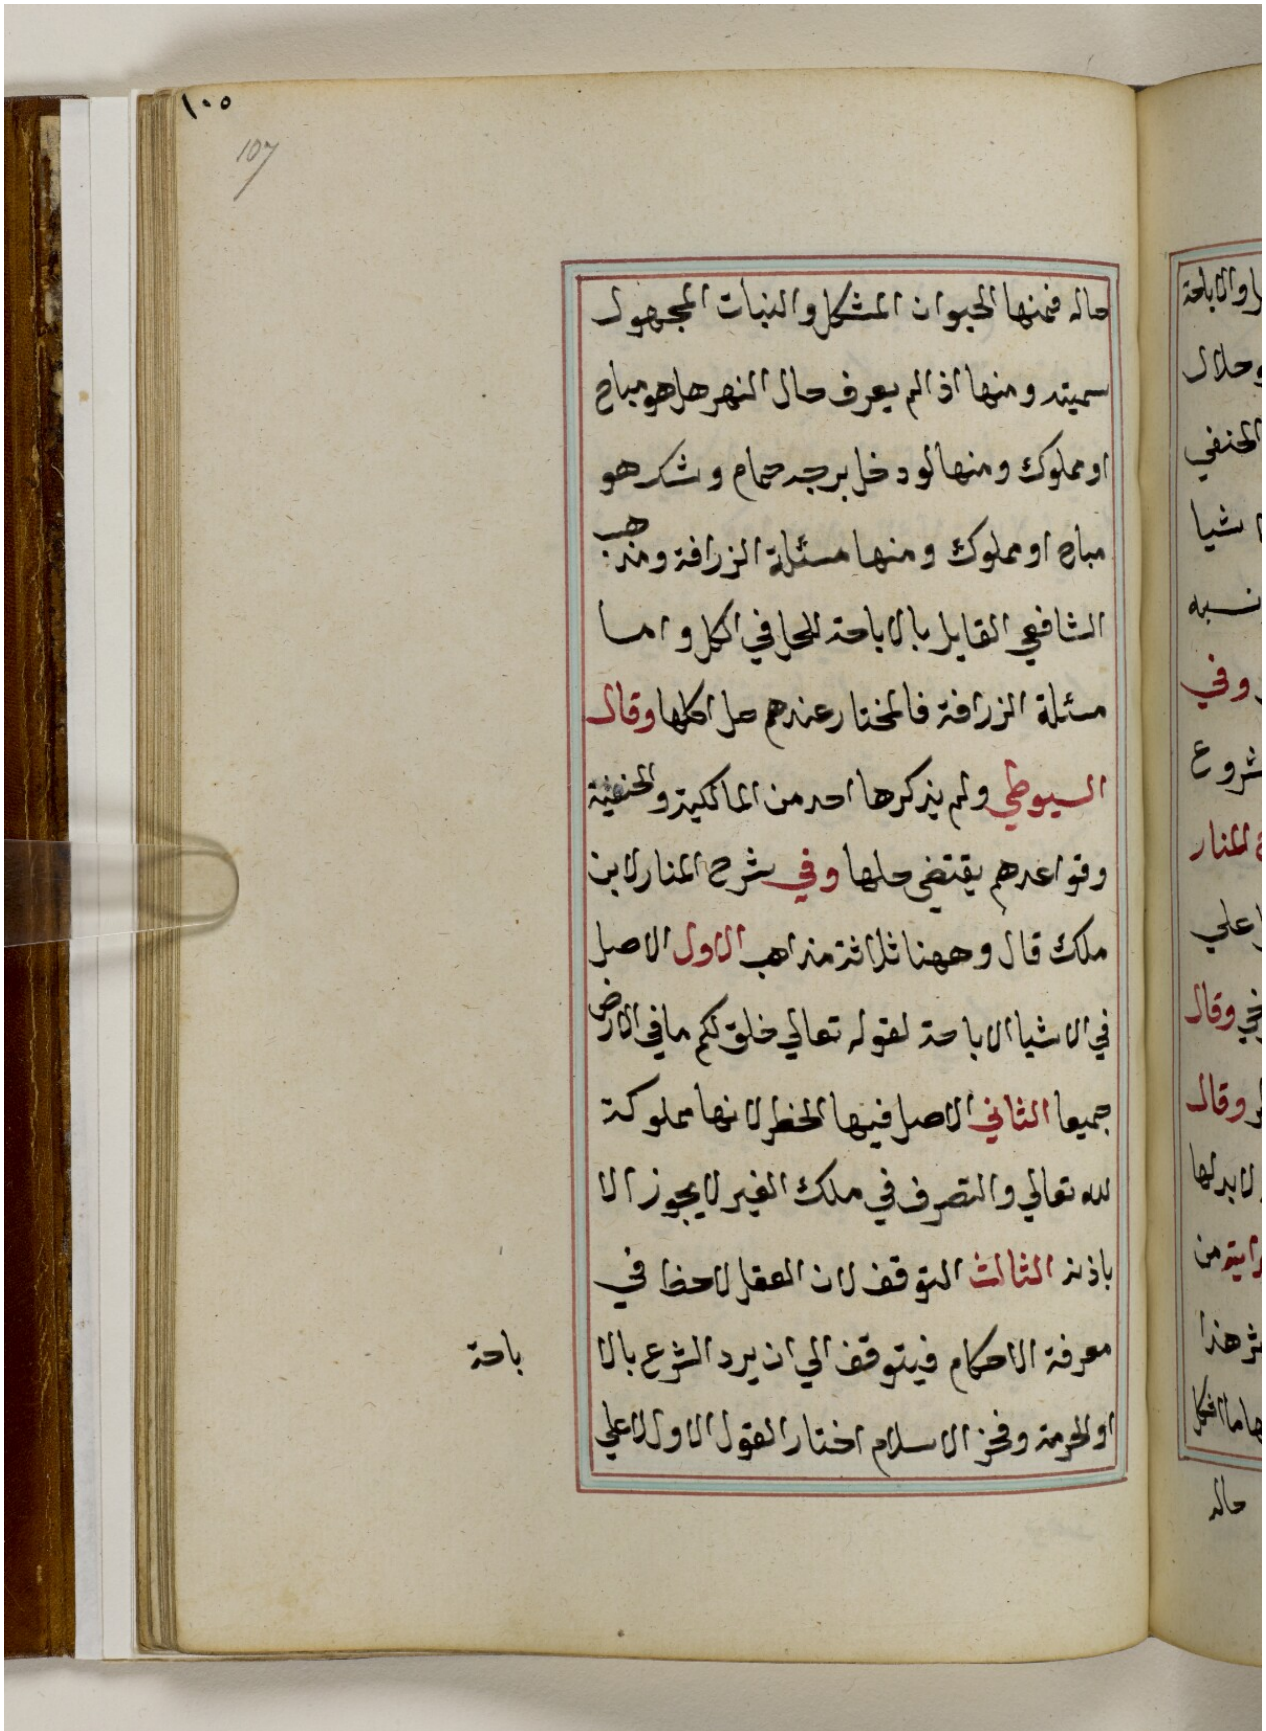 ١٠٥
107
حاله فمنها الحيوان المشكل والنبات المجهول
سميته ومنها اذا لم يعرف حال النهر هل هو مباح
او مملوك ومنها لو دخل برجه حمام وشك هو
مباح او مملوك ومنها مسئلة الزرافة ومذهب
الشافعي القايل بالاباحة الحل في الكل واما
مسئلة الزرافة فالمختار عندهم حل اكلها وقال
السيوطي ولم يذكرها احد من المالكية والحنفية
وقواعدهم يقتضي حلها وفي شرح المنار لابن
ملك قال وههنا ثلاثة مذاهب الاول الاصل
في الاشيا الاباحة لقوله تعالي خلق لكم ما في الارض
جميعا الثاني الاصل فيها الحظر لانها مملوكة
لله تعالي والتصرف في ملك الغير لا يجوز الا
باذنه الثالث التوقف لان العقل لا حظ في
معرفة الاحكام فيتوقف الي ان يرد الشرع بالا
باحة
او الحرمة وفخر الاسلام اختار القول الاول لا علي
والاباحة
حلال
الحنفي
شيا
نسبه
وفي
شروع
المنار
علي
وقال
وقال
لا بد لها
من
هذا
حاله